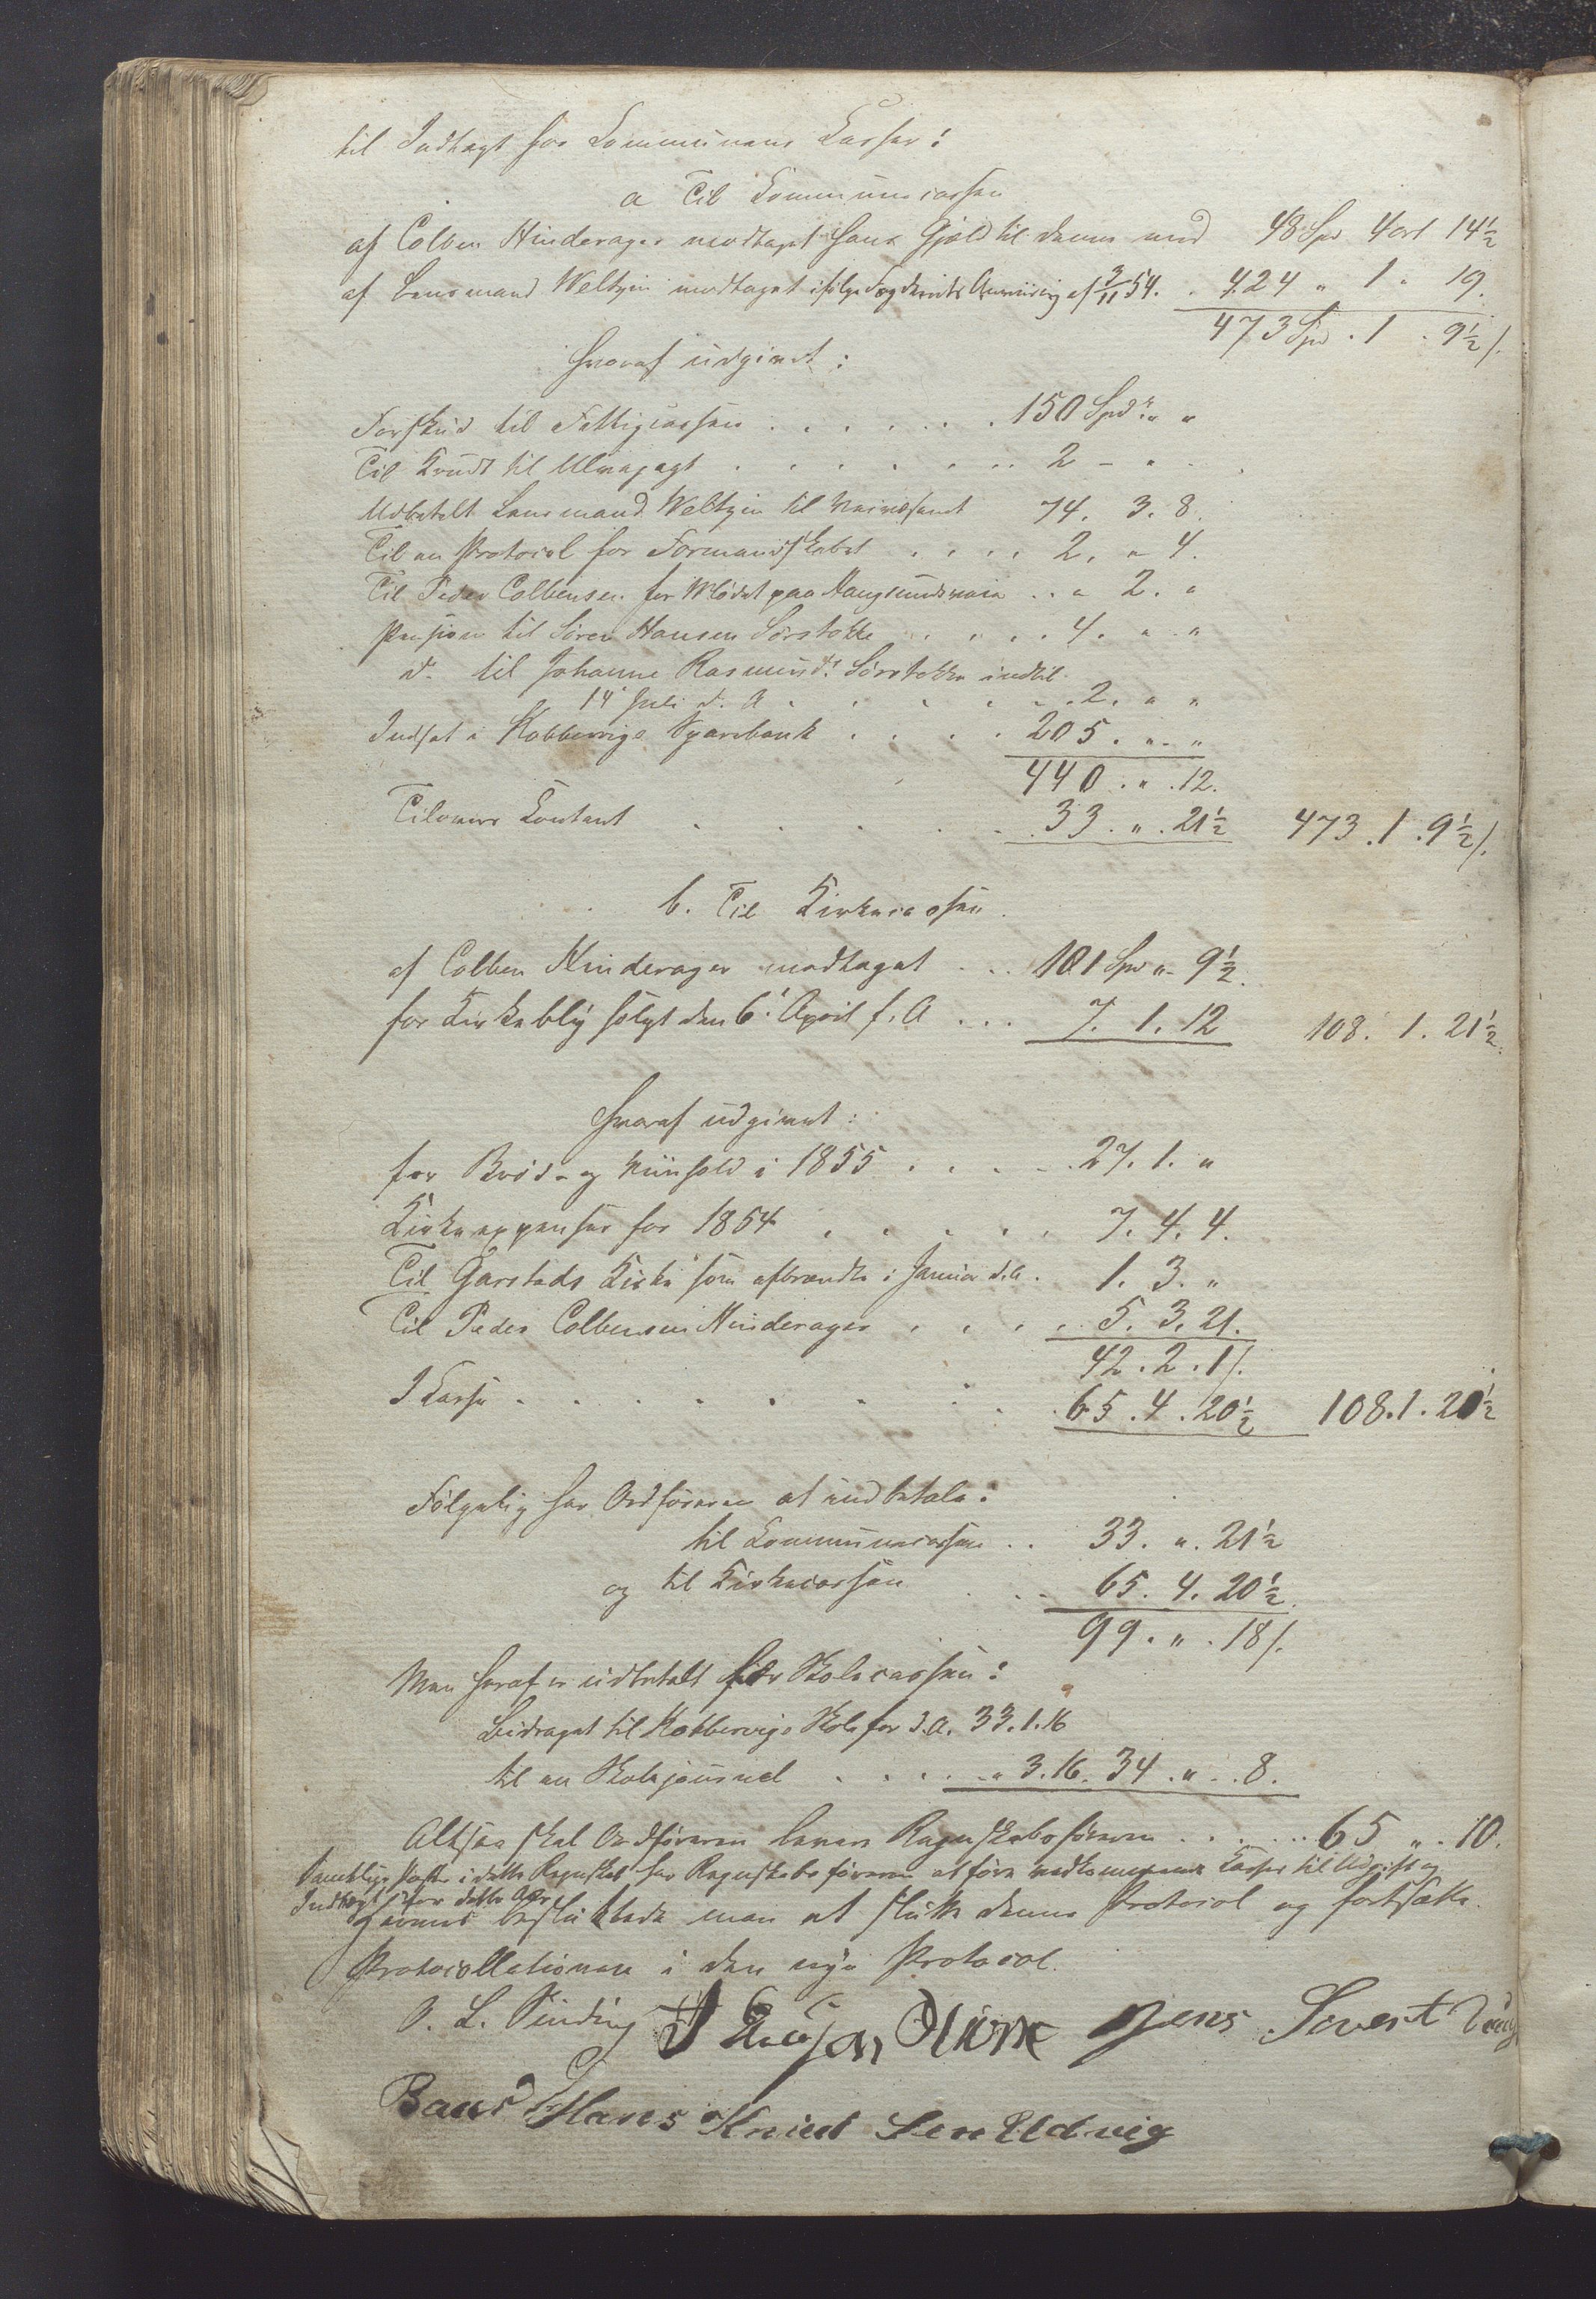 til Indtægt for Communens Casser:
a Til Communecassen
af Colben Hinderager modtaget hans Gjæld til denne med 48 Spd 4 ort 14½
af Lensmand Weltzin modtaget ifølge Fogderiets Anviisning af 3/11 54. . 424 " 1 " 19.
473 Spd . 1 . 9½ /.
hvoraf udgivet:
Forskud til Fattigcassen . . . . . . . 150 Spd " "
Til Krudt til Ulvejagt . . . . . . . . 2 - " -
Udbetalt Lensmand Weltzin til 74. 3. 8.
Til en Protocol for Formandskabet . . . . 2. " 4.
Til Peder Colbensen for Arbeidet paa . . " 2. "
Pension til Sören Hansen Sörstokke . . . . 4. " "
do til Johanne Rasmusd. Sörstokke indtil
14 Juli d. A . . . . . 2. " "
Indsat i Kobbervigs Sparebank . . . . 205. " "
440 . " . 12.
Tilovers Contant . . . . . 33 . " . 21½ 473 . 1 . 9½ /.
b. Til Kirkecassen.
af Colben Hinderager modtaget . . . 101 Spd " 9½.
for Kirkebly solgt den 6. April f. A . . . 7. 1. 12 108. 1. 21½.
hvoraf udgivet:
for Bröd- og Viinhold i 1855 . . . . 27. 1. "
Kirkeexpenser for 1854 . . . . . 7. 4. 4.
Til Garstads Kirke som afbrændte i Januar d. A. 1. 3. "
Til Peder Colbensen Hinderager . . . . 5. 3. 21.
42 . 2 . 1 /.
I Casse . . . . . . . . 65 . 4 . 20½ 108. 1. 20½
Følgelig har Ordføreren at indbetale:
til Communecassen . . 33. " . 21½
og til Kirkecassen . . 65. 4. 20½.
99. " . 18 /.
Men heraf er udbetalt for Skolecassen:
Bidraget til Kobbervigs Skole for d. A. 33. 1. 16
til en Skolejournal . . . . " 3. 16. 34 . " . 8.
Altsaa skal Ordføreren levere Regnskabsføreren . . . . . 65 " . 10.
Samtlige Poster i dette Regnskab har Regnskabsføreren at føre vedkommende Casser til Udgift og
Indtægt for dette Aar
besluttede man at slutte denne Protocol og fortsætte
Protocollationen i den nye Protocol.
O. L. Sinding Jens Sivert
Hans Knud Sen Udvig